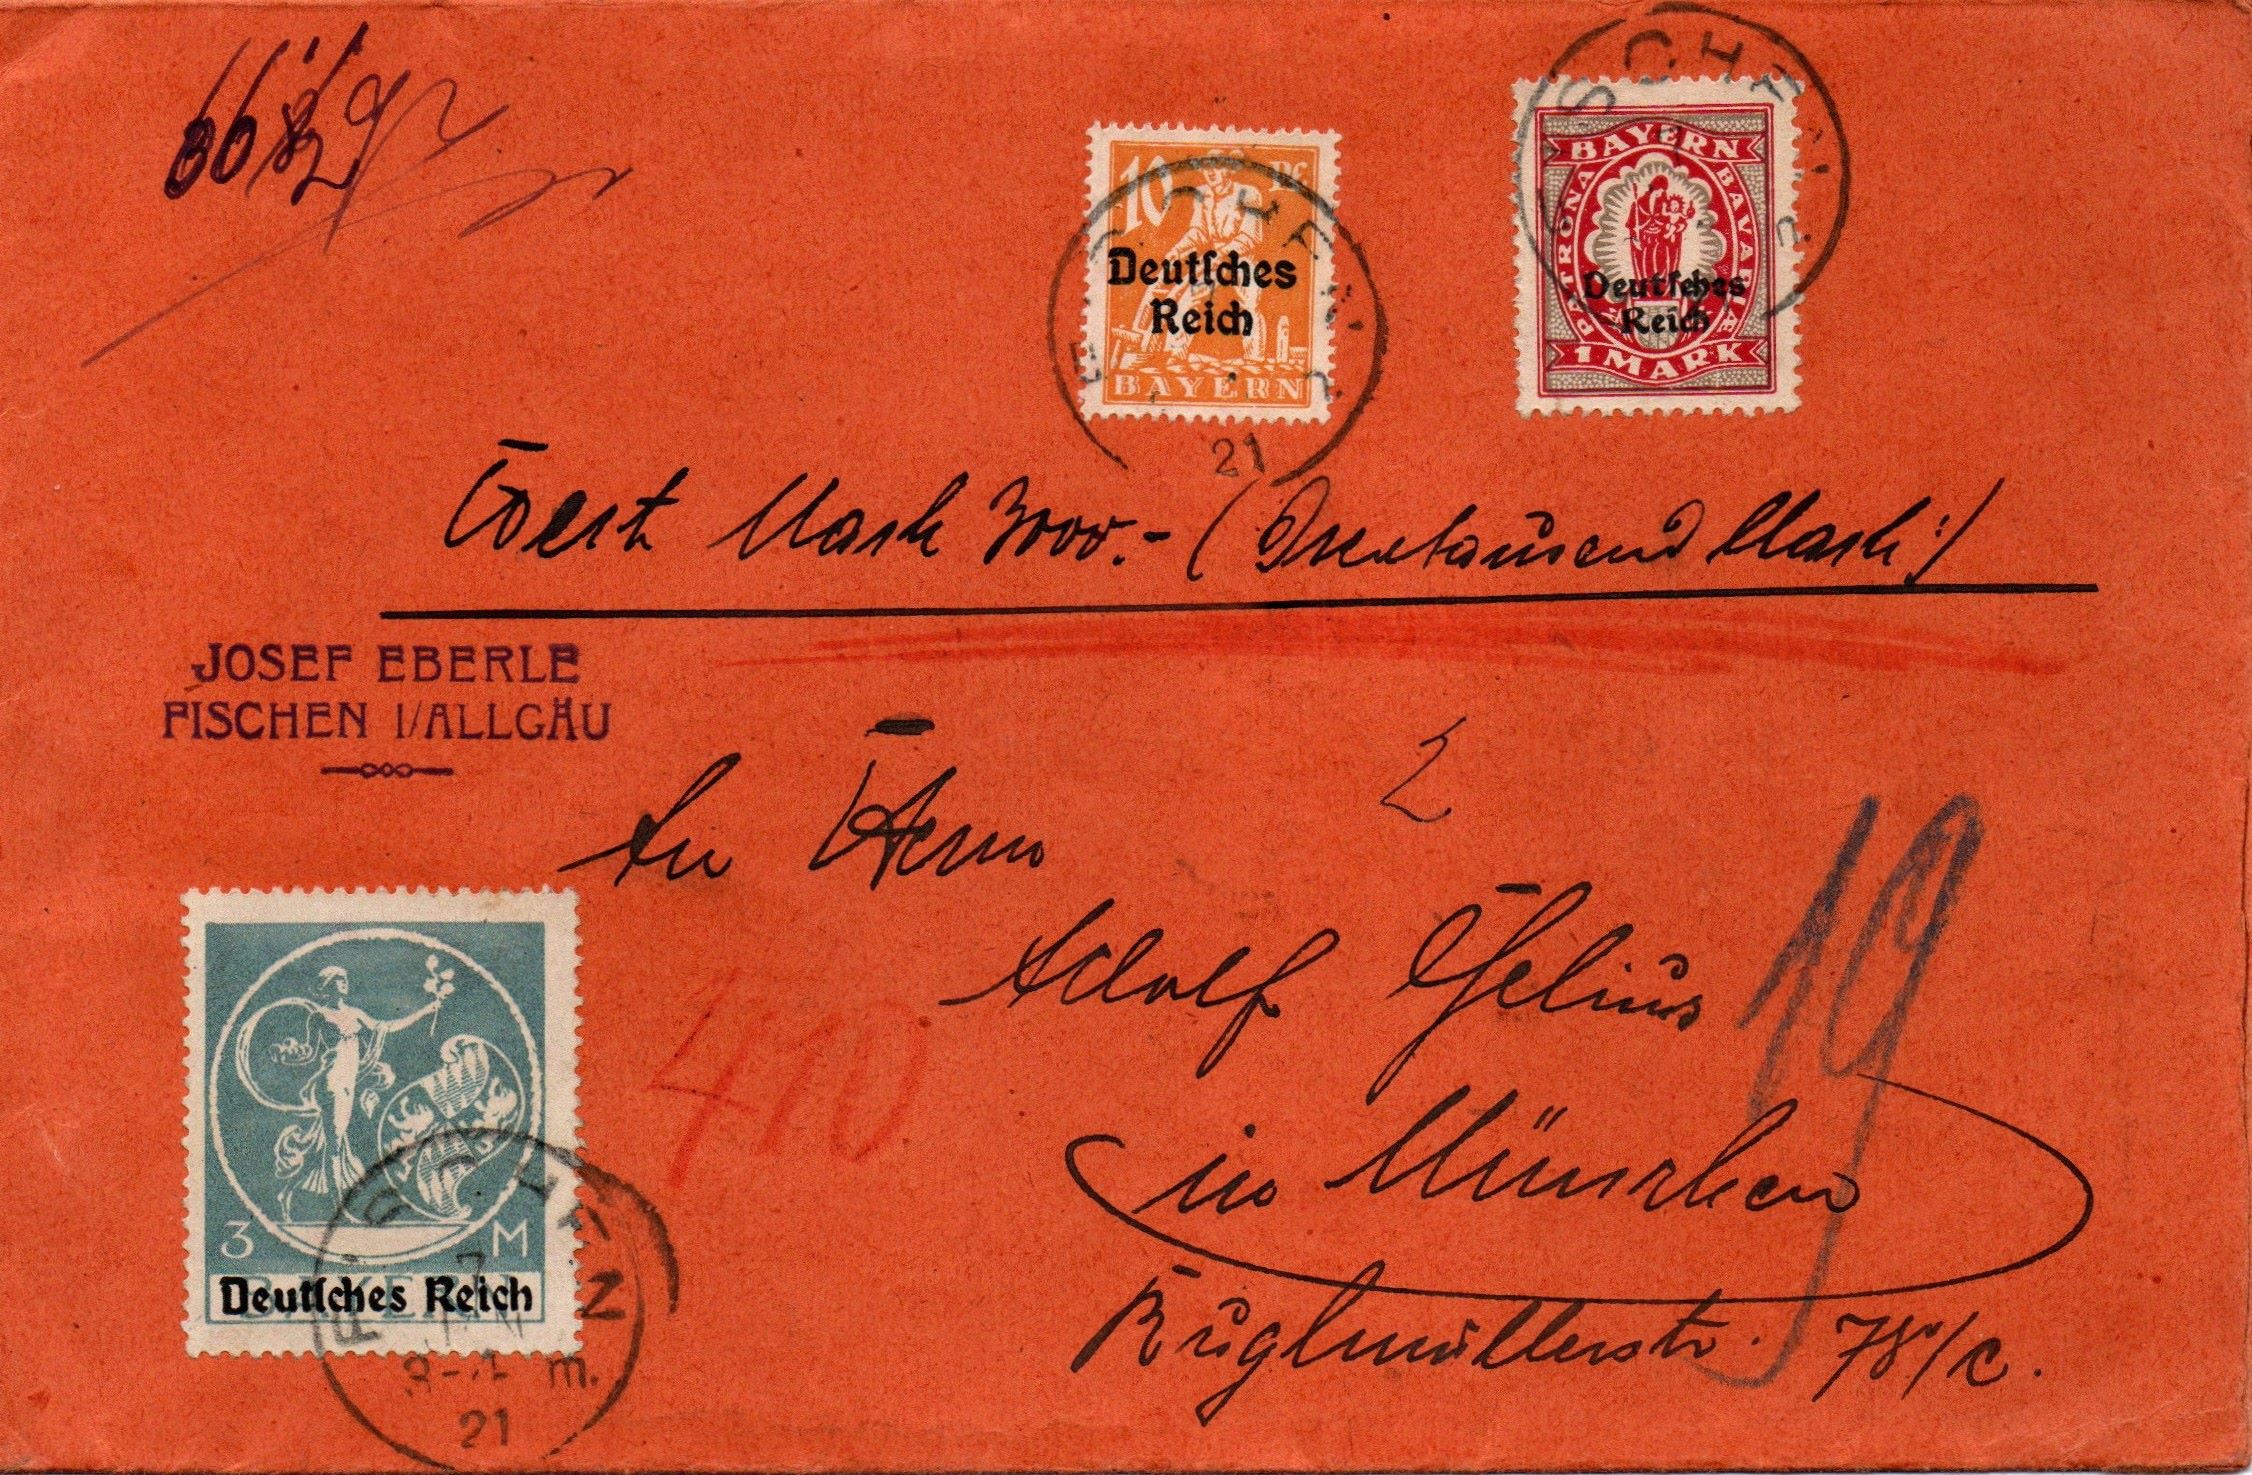 10 Pf
Deutsches
Reich
BAYERN
21
BAYERN
PATRONA BAVARIÆ
Deutsches
Reich
1 MARK
Wert Mark 3000.- (Dreitausend Mark:)
JOSEF EBERLE
FISCHEN I/ALLGÄU
2
An Herrn
Adolf Gelius
in München
19
410
3 M
Deutsches Reich
BAYERN
FISCHEN
7
3-4 m.
21
78/c.